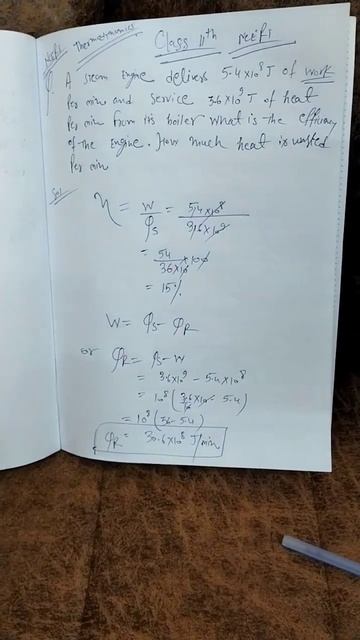 Thermodynamics
Class 11th NCERT
A steam Engine delivers 5.4×10⁸ J of work
Per min and service 3.6×10⁹ J of heat
Per min from its boiler what is the efficiency
of the Engine. How much heat is wasted
Per min
Sol
η = W/φs = 5.4×10⁸/3.6×10⁹
= 54/36×10 × 100
= 15%
W = φs - φR
or φR = φs - W
= 3.6×10⁹ - 5.4×10⁸
= 10⁸ (3.6×10 - 5.4)
= 10⁸ (36 - 5.4)
φR = 30.6×10⁸ J/min